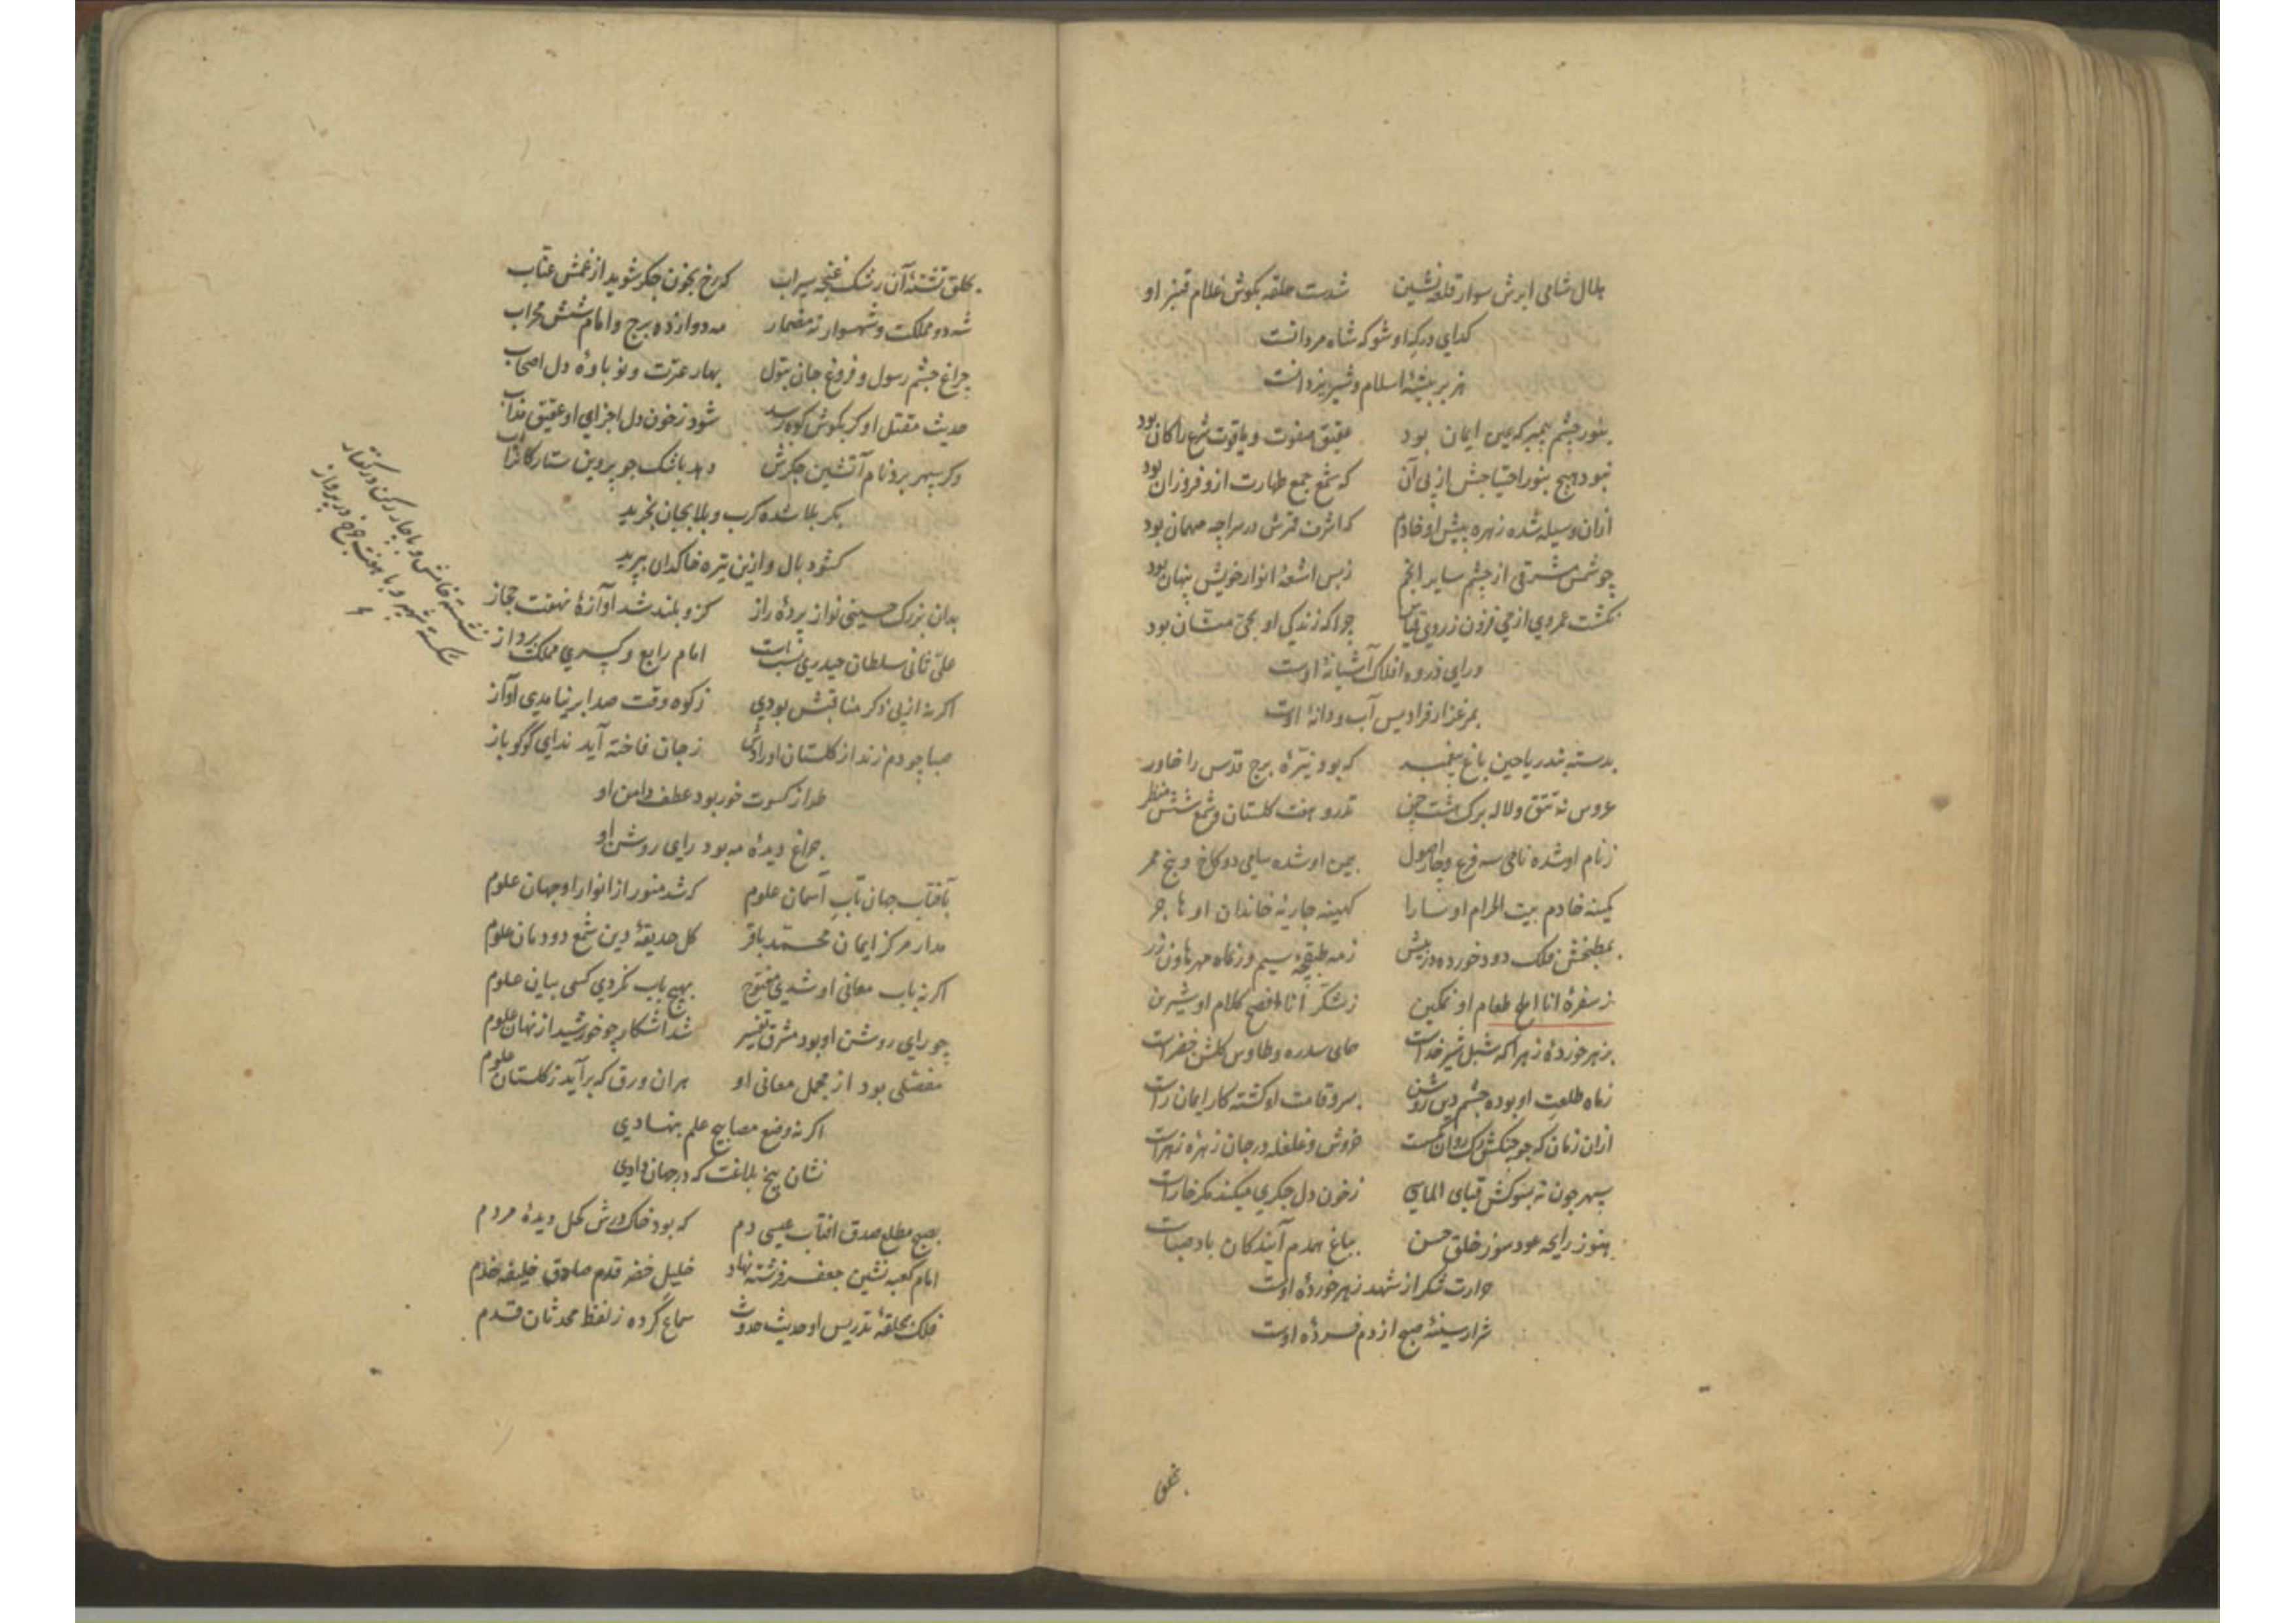 هلال شامی ابرش سوار قلعه نشین شدست حلقه بکوش غلام قنبر او
کدای درکه او شو که شاه مردانست
هزبر بیشهٔ اسلام و شیر یزدانست
بنور چشم پیمبر که عین ایمان بود عقیق صفوت و یاقوت شرع را کان بود
نبود هیچ بنور احتیاجش از پی آن که شمع جمع طهارت ازو فروزان بود
ازان وسیله شده زهره پیش او خادم که اشرف قرش در سراچه مهمان بود
چو شمس مشرقی از چشم سایر انجم ز بس اشعهٔ انوار خویش پنهان بود
نکشت عمر وی از حی فزون ز روی قیاس چرا که زندکی او بحی منان بود
ورای ذروه افلاک آشیانهٔ اوست
بمرغزار فرادیس آب و دانهٔ اوست
بدسته بند ریاحین باغ پیغمبر که بود نیّرهٔ برج قدس را خاور
عروس نه تتق و لاله برک هشت چمن تذرو هفت کلستان و شمع شش منظر
ز نام او شده نامی سه فرع و چار اصول بیمن او شده سامی دو کاخ و پنج ممر
کمینه خادم بیت الحرام او سارا کهینه جاریهٔ خاندان او هاجر
بمطبخش فلک دود خورده در پیش ز مه طبقچه سیم و ز ماه مهر هاون زر
ز سفرهٔ انا املح طعام او نمکین ز شکّر انا افصح کلام او شیرین
بزهر خوردهٔ زهرا که شبل شیر خداست همای سدره و طاوس کلشن خضراست
ز ماه طلعت او بوده چشم دین روشن بسرو قامت او کشته کار ایمان راست
ازان زمان که چو چنکش رک روان بکسست خروش و غلغله در جان زهرهٔ زهراست
سپهر چون نه بسوکش قبای الماسی ز خون دل جکری میکند مکر خاراست
هنوز رایحه عود سوز خلق حسن بباغ همدم آیندکان باد صباست
حرارت شکر از شهد زهر خوردهٔ اوست
شرار سینهٔ صبح از دم فسردهٔ اوست
بحلق
بحلق تشنهٔ آن رشک غنچه سیراب که رخ بخون جکر شوید از غمش عناب
شه دو مملکت و شهسوار نه مضمار مه دوازده برج و امام شش محراب
چراغ چشم رسول و فروغ جان بتول بهار عترت و نوباوهٔ دل اصحاب
حدیث مقتل او کر بکوش کوه رسد شود ز خون دل اجزای او عقیق مذاب
وکر سپهر برد نام آتشین جکرش
بکربلا شده کرب و بلا بجان بخرید
کشود بال و ازین تیره خاکدان بپرید
بدان بزرک حسینی نواز پردهٔ راز کزو بلند شد آوازهٔ نهفت حجاز
علیّ ثانی سلطان حیدری نسبت امام رابع و کسری مملکت پرداز
اکر نه از پی ذکر مناقبش بودی ز کوه وقت صدا برنیامدی آواز
صبا چو دم زند از کلستان اورادش ز جان فاخته آید ندای کوکو باز
نشسته خامش و با چار رکن در کفتار
شکسته شهپر و با هفت چرخ در پرواز
طراز کسوت خور بود عطف دامن او
چراغ دیدهٔ مه بود رای روشن او
بآفتاب جهان تاب آسمان علوم که شد منور از انوار او جهان علوم
مدار مرکز ایمان محمّد باقر کل حدیقهٔ دین شمع دودمان علوم
اکر نه باب معانی او شدی مفتوح بهیچ باب نکردی کسی بیان علوم
چو رای روشن او بود مشرق تفسیر شد آشکار چو خورشید از نهان علوم
مفصّلی بود از مجمل معانی او هر آن ورق که برآید ز کلستان علوم
اکر نه وضع مصابیح علم بنهادی
نشان نهج بلاغت که در جهان دادی
بصبح مطلع صدق افتاب عیسی دم که بود خاک درش کحل دیدهٔ مردم
امام کعبه نشین جعفر فرشته نهاد خلیل خضر قدم صادق خلیفه خدم
فلک بحلقهٔ تدریس او حدیث حدوث سماع کرده ز لفظ محدثان قدم